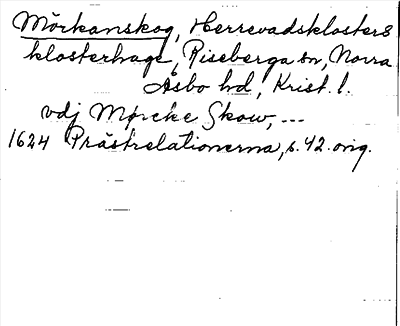 Mörkanskog, Herrevadsklosters
klosterhage, Riseberga sn, Norra
Åsbo hd, Krist. l.
vdj Mørcke Skow, ...
1624 Prästrelationerna, s. 42. orig.